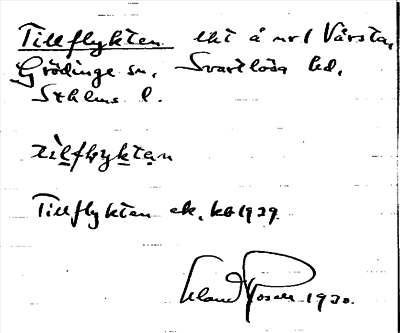 Tillflykten lht å nr 1 Vårsta,
Grödinge sn. Svartlösa hd.
Sthlms l.
tìlflyktạn
Tillflykten ek. kb 1939
1930.